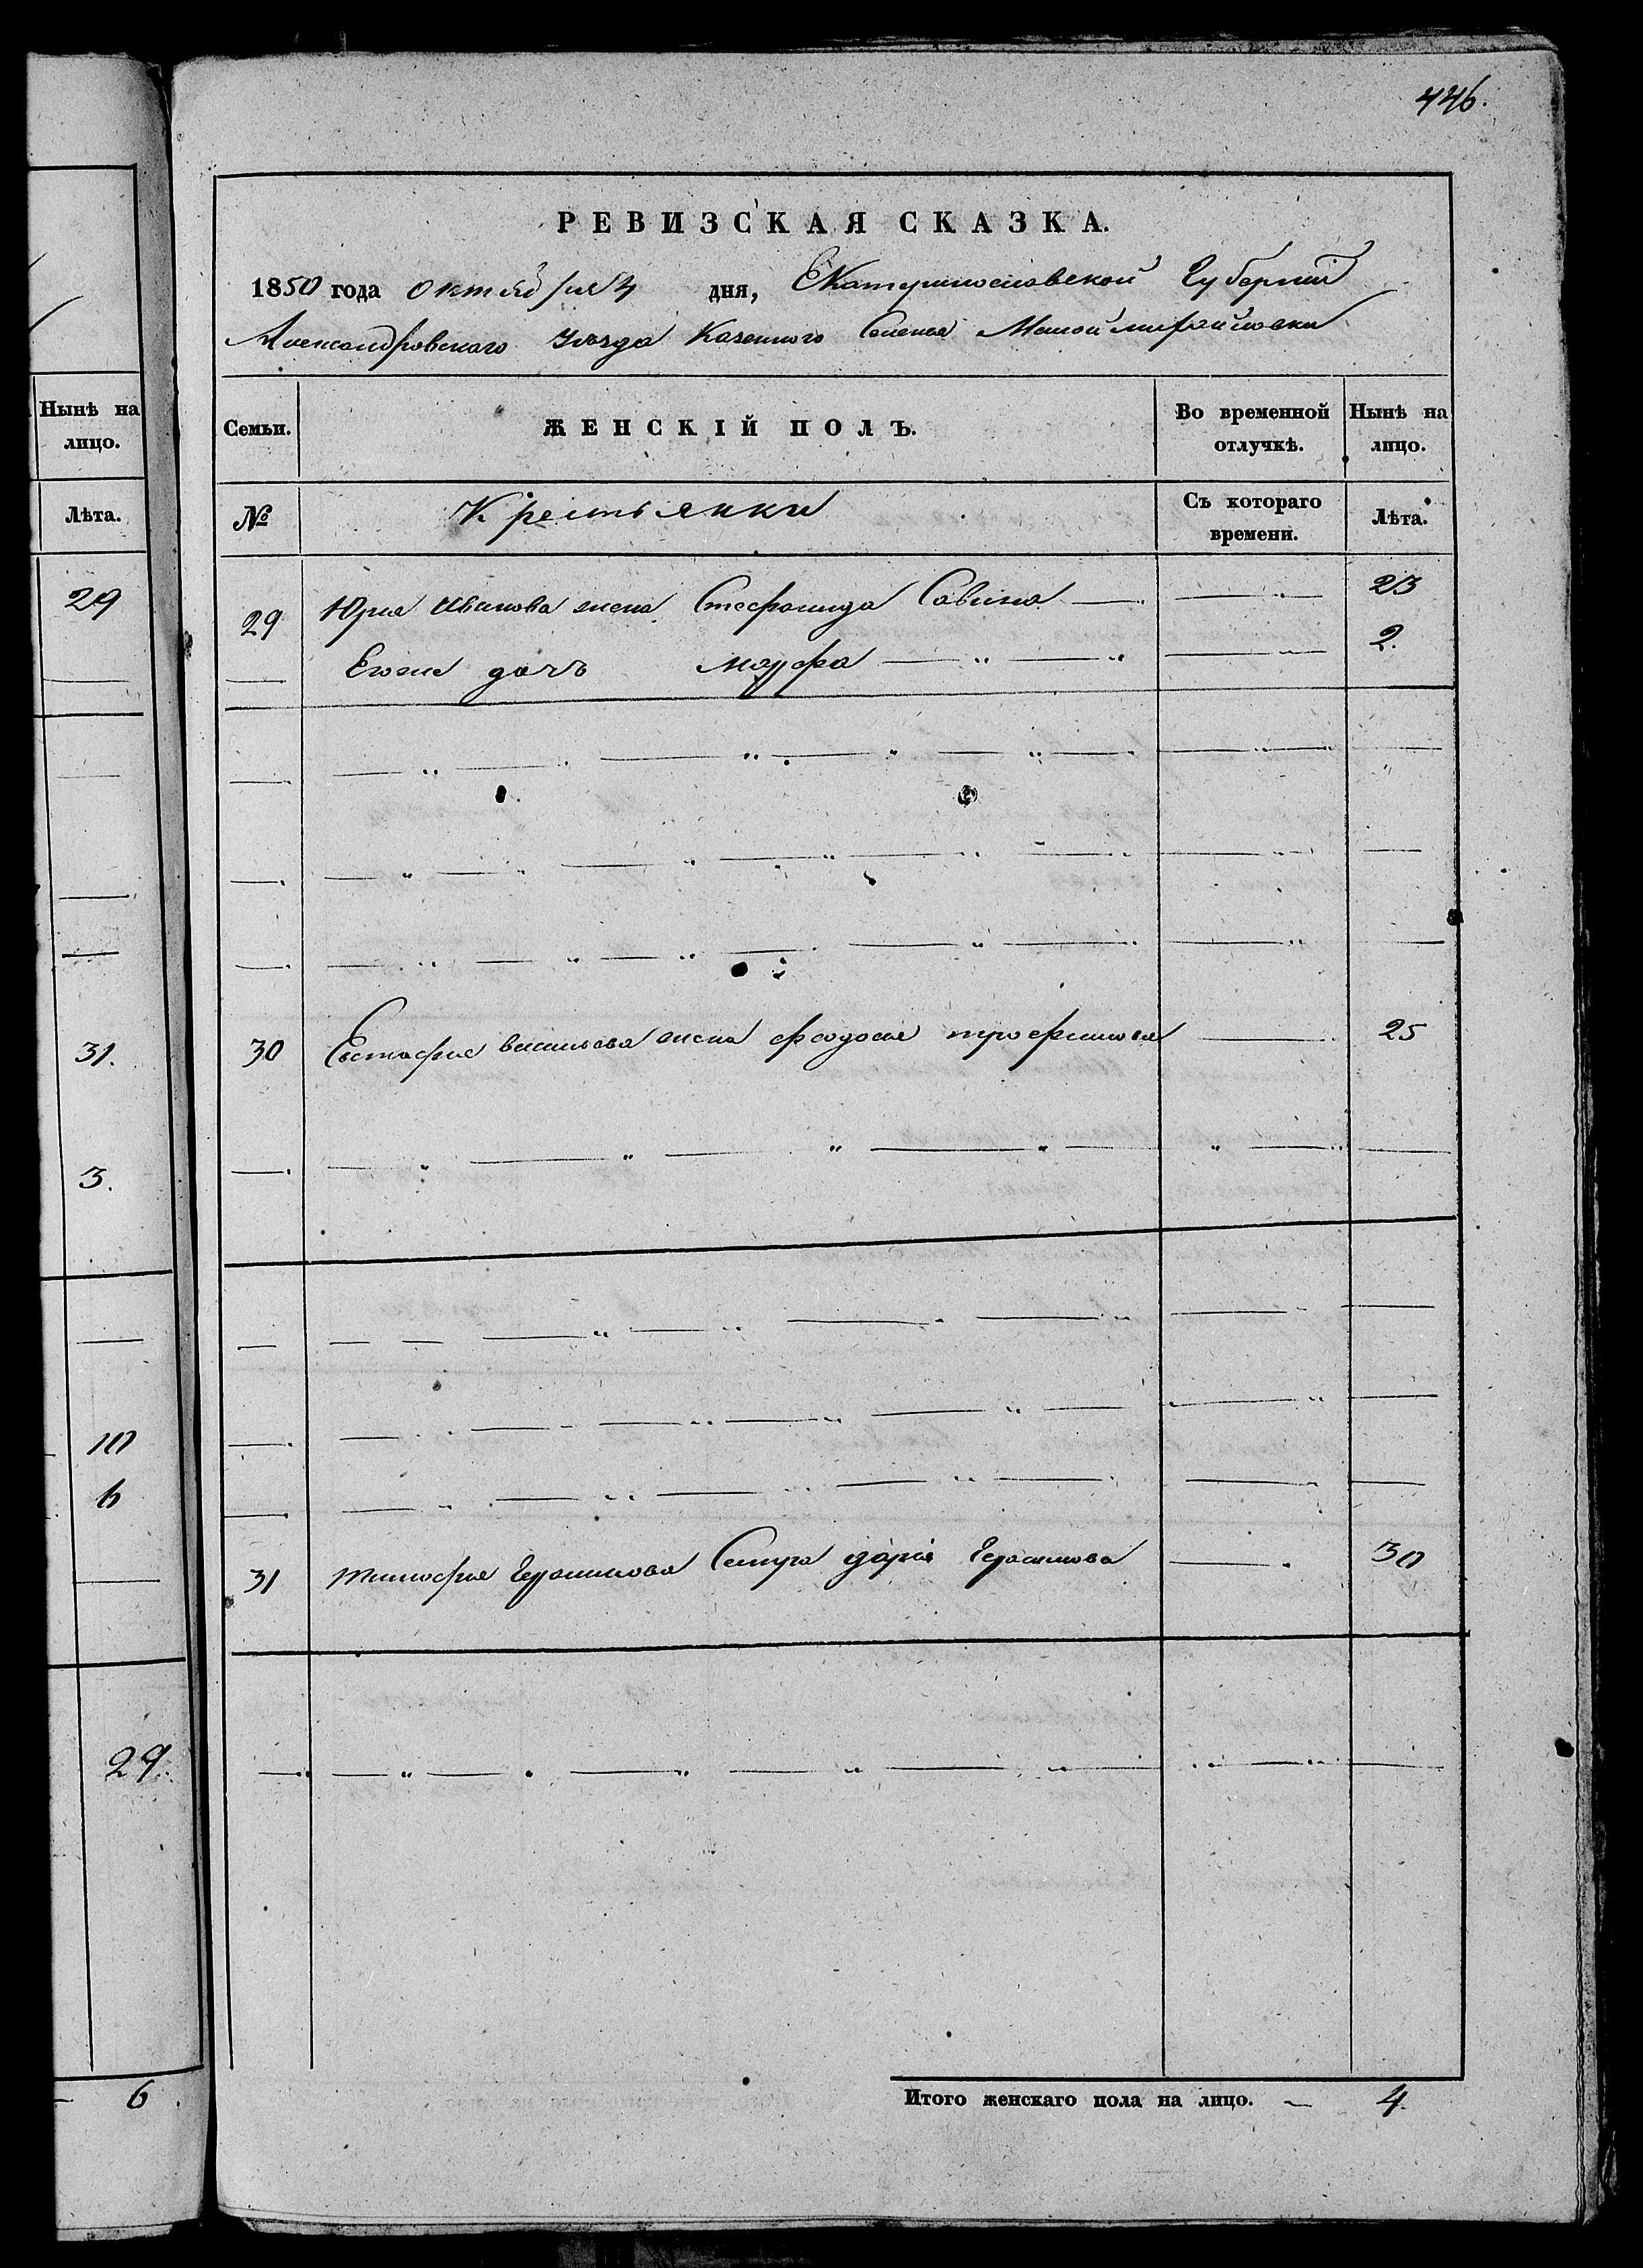 446.
РЕВИЗСКАЯ СКАЗКА.
1850 года октября 4 дня, Екатеринославской Губернии
Александровского Уезда Казенного Селенья Малой михайловки
Нынѣ на лицо.
Семьи. ЖЕНСКІЙ ПОЛЪ. Во временной отлучкѣ. Нынѣ на лицо.
Лѣта.
№ Крестьянки Съ котораго времени. Лѣта.
29
29 Юрия Иванова жена Стефанида Савина 23
Егоже дочъ марфа 2.
31.
30 Евстафия васильева жена феодосия трофимова 25
3.
10
6
31 тимофия Герасимова Сестра дария Герасимова 30
29.
6
Итого женскаго пола на лицо. — 4.